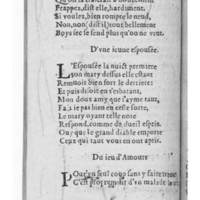 Frappez, dist elle, hardiment,
Si voulez, bien rompre le neud,
Non, non (dist il) tout bellement
Boys sec se fend plus qu'on ne veut.
D'vne ieune espousée.
L'Espousée la nuict permiere
son mary dessus elle estant
Remnoit bien fort le derriere
Et puis disoit en s'esbatant,
Mon doux amy que t'ayme tant,
Fais ie pas bien en ceste sorte,
Le mary oyant telle note
Respond, comme de dueil espris,
Ouy, que le grand diable emporte
Ceux qui tant vous en ont apris.
Du ieu d'Amours
POur en seul coup sans y faire
C'est d'vn malade